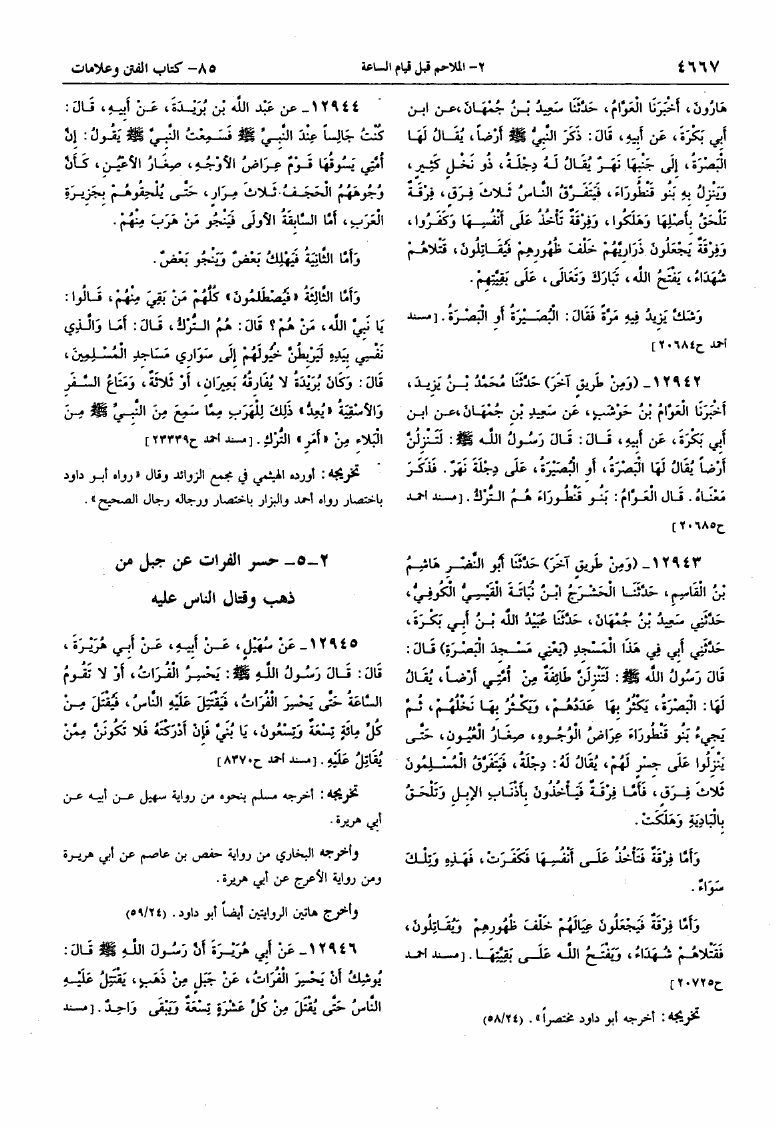 ٤٦٦٧
٢- الملاحم قبل قيام الساعة
٨٥- كتاب الفتن وعلامات
هَارُونَ، أَخْبَرَنَا الْعَوَّامُ، حَدَّثَنَا سَعِيدُ بْنُ جُمْهَانَ، عَن ابن
أَبِي بَكْرَةَ، عَن أَبِيهِ، قَالَ: ذَكَرَ النَّبِيُّ ﷺ أَرْضاً، يُقَالُ لَهَا
الْبَصْرَةُ، إِلَى جَنْبِهَا نَهَرٌ يُقَالُ لَهُ دِجْلَةُ، ذُو نَخْلٍ كَثِيرٍ،
وَيَنْزِلُ بِهِ بَنُو قَنْطُورَاءَ، فَيَتَفَرَّقُ النَّاسُ ثَلاثَ فِرَقٍ، فِرْقَةٌ
تَلْحَقُ بِأَصْلِهَا وَهَلَكُوا، وَفِرْقَةٌ تَأْخُذُ عَلَى أَنْفُسِهَا وَكَفَرُوا،
وَفِرْقَةٌ يَجْعَلُونَ ذَرَارِيَّهُمْ خَلْفَ ظُهُورِهِمْ فَيُقَاتِلُونَ، قَتْلاهُمْ
شُهَدَاءُ، يَفْتَحُ اللَّه، تَبَارَكَ وَتَعَالَى، عَلَى بَقِيَّتِهِمْ.
وَشَكَّ يَزِيدُ فِيهِ مَرَّةً فَقَالَ: الْبُصَيْرَةُ أَوِ الْبَصْرَةُ. [مسند
أحمد ح٢٠٦٨٤]
١٢٩٤٢- (وَمِنْ طَرِيقٍ آخَرَ) حَدَّثَنَا مُحَمَّدُ بْنُ يَزِيدَ،
أَخْبَرَنَا الْعَوَّامُ بْنُ حَوْشَبٍ، عَن سَعِيدِ بْنِ جُمْهَانَ، عَن ابن
أَبِي بَكْرَةَ، عَن أَبِيهِ، قَالَ: قَالَ رَسُولُ اللَّه ﷺ: لَتَنْزِلُنَّ
أَرْضاً يُقَالُ لَهَا الْبَصْرَةُ، أَوِ الْبُصَيْرَةُ، عَلَى دِجْلَةَ نَهَرٌ. فَذَكَرَ
مَعْنَاهُ. قَال الْعَوَّامُ: بَنُو قَنْطُورَاءَ هُمُ التُّرْكُ. [مسند احمد
ح٢٠٦٨٥]
١٢٩٤٣- (وَمِنْ طَرِيقٍ آخَرَ) حَدَّثَنَا أَبُو النَّضْرِ هَاشِمُ
بْنُ الْقَاسِمِ، حَدَّثَنَا الْحَشْرَجُ ابْنُ نُبَاتَةَ الْقَيْسِيُّ الْكُوفِيُّ،
حَدَّثَنِي سَعِيدُ بْنُ جُمْهَانَ، حَدَّثَنَا عُبَيْدُ اللَّه بْنُ أَبِي بَكْرَةَ،
حَدَّثَنِي أَبِي فِي هَذَا الْمَسْجِدِ (يَعْنِي مَسْجِدَ الْبَصْرَةِ) قَالَ:
قَالَ رَسُولُ اللَّه ﷺ: لَتَنْزِلَنَّ طَائِفَةٌ مِنْ أُمَّتِي أَرْضاً، يُقَالُ
لَهَا: الْبَصْرَةُ، يَكْثُرُ بِهَا عَدَدُهُمْ، وَيَكْثُرُ بِهَا نَخْلُهُمْ، ثُمَّ
يَجِيءُ بَنُو قَنْطُورَاءَ عِرَاضُ الْوُجُوهِ، صِغَارُ الْعُيُونِ، حَتَّى
يَنْزِلُوا عَلَى جِسْرٍ لَهُمْ، يُقَالُ لَهُ: دِجْلَةُ، فَيَتَفَرَّقُ الْمُسْلِمُونَ
ثَلاثَ فِرَقٍ، فَأَمَّا فِرْقَةٌ فَيَأْخُذُونَ بِأَذْنَابِ الإبِلِ وَتَلْحَقُ
بِالْبَادِيَةِ وَهَلَكَتْ.
وَأَمَّا فِرْقَةٌ فَتَأْخُذُ عَلَى أَنْفُسِهَا فَكَفَرَتْ، فَهَذِهِ وَتِلْكَ
سَوَاءٌ.
وَأَمَّا فِرْقَةٌ فَيَجْعَلُونَ عِيَالَهُمْ خَلْفَ ظُهُورِهِمْ وَيُقَاتِلُونَ،
فَقَتْلاهُمْ شُهَدَاءُ، وَيَفْتَحُ اللَّه عَلَى بَقِيَّتِهَا. [مسند احمد
ح٢٠٧٢٥]
تخريجه: أخرجه أبو داود مختصراً». (٥٨/٢٤)
١٢٩٤٤- عن عَبْد اللَّه بْنِ بُرَيْدَةَ، عَنْ أَبِيهِ، قَالَ:
كُنْتُ جَالِساً عِنْدَ النَّبِيِّ ﷺ فَسَمِعْتُ النَّبِيَّ ﷺ يَقُولُ: إِنَّ
أُمَّتِي يَسُوقُهَا قَوْمٌ عِرَاضُ الأَوْجُهِ، صِغَارُ الأَعْيُنِ، كَأَنَّ
وُجُوهَهُمُ الْحَجَفُ ثَلاثَ مِرَارٍ، حَتَّى يُلْحِقُوهُمْ بِجَزِيرَةِ
الْعَرَبِ، أَمَّا السَّابِقَةُ الأُولَى فَيَنْجُو مَنْ هَرَبَ مِنْهُمْ.
وَأَمَّا الثَّانِيَةُ فَيَهْلِكُ بَعْضٌ وَيَنْجُو بَعْضٌ.
وَأَمَّا الثَّالِثَةُ «فَيُصْطَلَمُونَ» كُلُّهُمْ مَنْ بَقِيَ مِنْهُمْ، قَالُوا:
يَا نَبِيَّ اللَّه، مَنْ هُمْ؟ قَالَ: هُمُ التُّرْكُ، قَالَ: أَمَا وَالَّذِي
نَفْسِي بِيَدِهِ لَيَرْبِطُنَّ خُيُولَهُمْ إِلَى سَوَارِي مَسَاجِدِ الْمُسْلِمِينَ،
قَالَ: وَكَانَ بُرَيْدَةُ لا يُفَارِقُهُ بَعِيرَانِ، أَوْ ثَلاثَةٌ، وَمَتَاعُ السَّفَرِ
وَالأَسْقِيَةُ «يُعِدُّ» ذَلِكَ لِلْهَرَبِ مِمَّا سَمِعَ مِنَ النَّبِيِّ ﷺ مِنَ
الْبَلاءِ مِنْ «أَمَرِ» التُّرْكِ. [مسند احمد ح٢٣٣٣٩]
تخريجه: أورده الهيثمي في مجمع الزوائد وقال «رواه أبو داود
باختصار رواه أحمد والبزار باختصار ورجاله رجال الصحيح».
٢-٥- حسر الفرات عن جبل من
ذهب وقتال الناس عليه
١٢٩٤٥- عَنْ سُهَيْلٍ، عَنْ أَبِيهِ، عَنْ أَبِي هُرَيْرَةَ،
قَالَ: قَالَ رَسُولُ اللَّهِ ﷺ: يَحْسِرُ الْفُرَاتُ، أَوْ لا تَقُومُ
السَّاعَةُ حَتَّى يَحْسِرَ الْفُرَاتُ، فَيَقْتَتِلُ عَلَيْهِ النَّاسُ، فَيُقْتَلُ مِنْ
كُلِّ مِائَةٍ تِسْعَةٌ وَتِسْعُونَ، يَا بُنَيَّ فَإِنْ أَدْرَكْتَهُ فَلا تَكُونَنَّ مِمَّنْ
يُقَاتِلُ عَلَيْهِ. [مسند احمد ح٨٣٧٠]
تخريجه: أخرجه مسلم بنحوه من رواية سهيل عن أبيه عن
أبي هريرة.
وأخرجه البخاري من رواية حفص بن عاصم عن أبي هريرة
ومن رواية الأعرج عن أبي هريرة.
وأخرج هاتين الروايتين أيضاً أبو داود. (٥٩/٢٤)
١٢٩٤٦- عَنْ أَبِي هُرَيْرَةَ أَنَّ رَسُولَ اللَّهِ ﷺ قَالَ:
يُوشِكُ أَنْ يَحْسِرَ الْفُرَاتُ، عَنْ جَبَلٍ مِنْ ذَهَبٍ، يَقْتَتِلُ عَلَيْهِ
النَّاسُ حَتَّى يُقْتَلَ مِنْ كُلِّ عَشْرَةٍ تِسْعَةٌ وَيَبْقَى وَاحِدٌ. [مسند